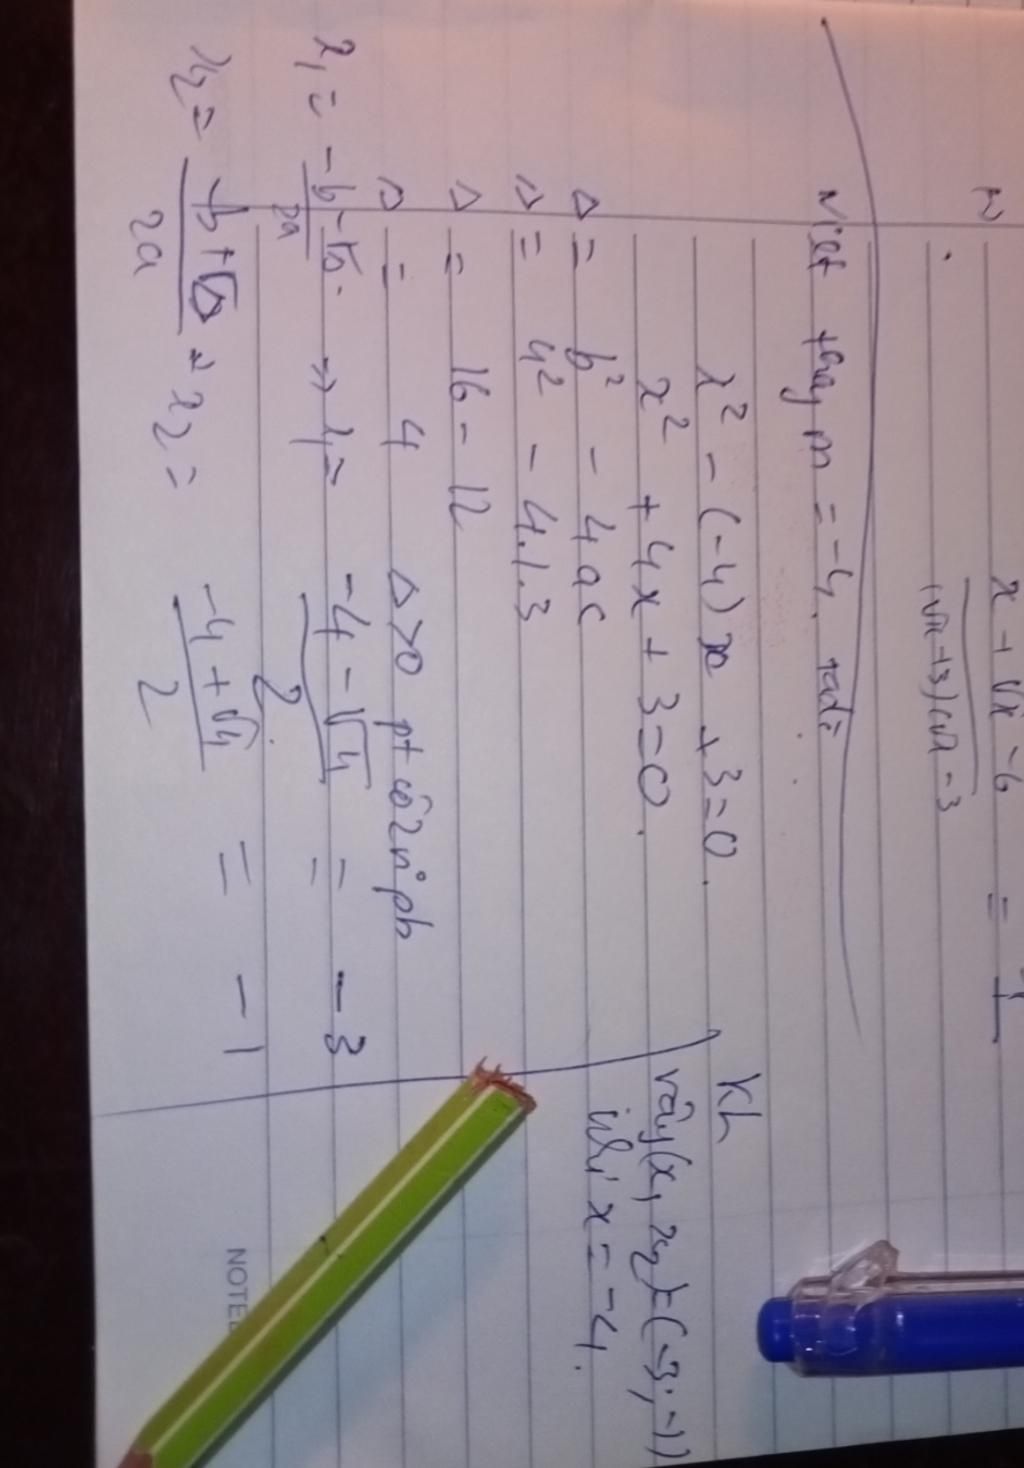 x + √x - 6
=
(√x + 3)(√x - 3
thay m = -4. ta có
x² - (-4)x + 3 = 0.
x² + 4x + 3 = 0.
Δ = b² - 4ac
Δ = 4² - 4.1.3
Δ = 16 - 12
Δ = 4 Δ>0 pt có 2 n° pb
x₁ = -b-√Δ / 2a => x₁ = -4-√4 / 2 = -3
x₂ = -b+√Δ / 2a => x₂ = -4+√4 / 2 = -1
KL
vậy (x₁, x₂) = (-3; -1)
khi x = -4.
NOTE